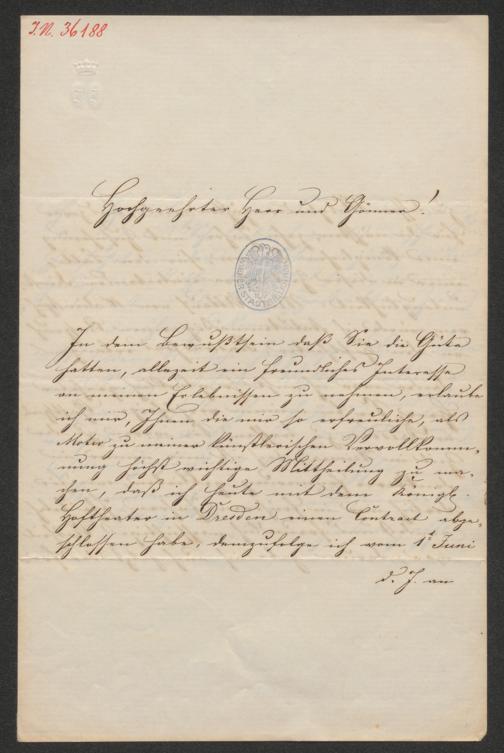 I.N. 36188
Hochgeehrter Herr und Gönner!
In dem Bewußtsein daß Sie die Güte
hatten, allezeit ein freundliches Interesse
an meinen Erlebnissen zu nehmen, erlaube
ich mir, Ihnen die mir so erfreuliche, als
Motor zu meiner künstlerischen Vervollkomm¬
nung höchst wichtige Mittheilung zu ma¬
chen, daß ich heute mit dem Königl.
Hoftheater in Dresden einen Contract abge¬
schlossen habe, demzufolge ich vom 1t Juni
d. J. an